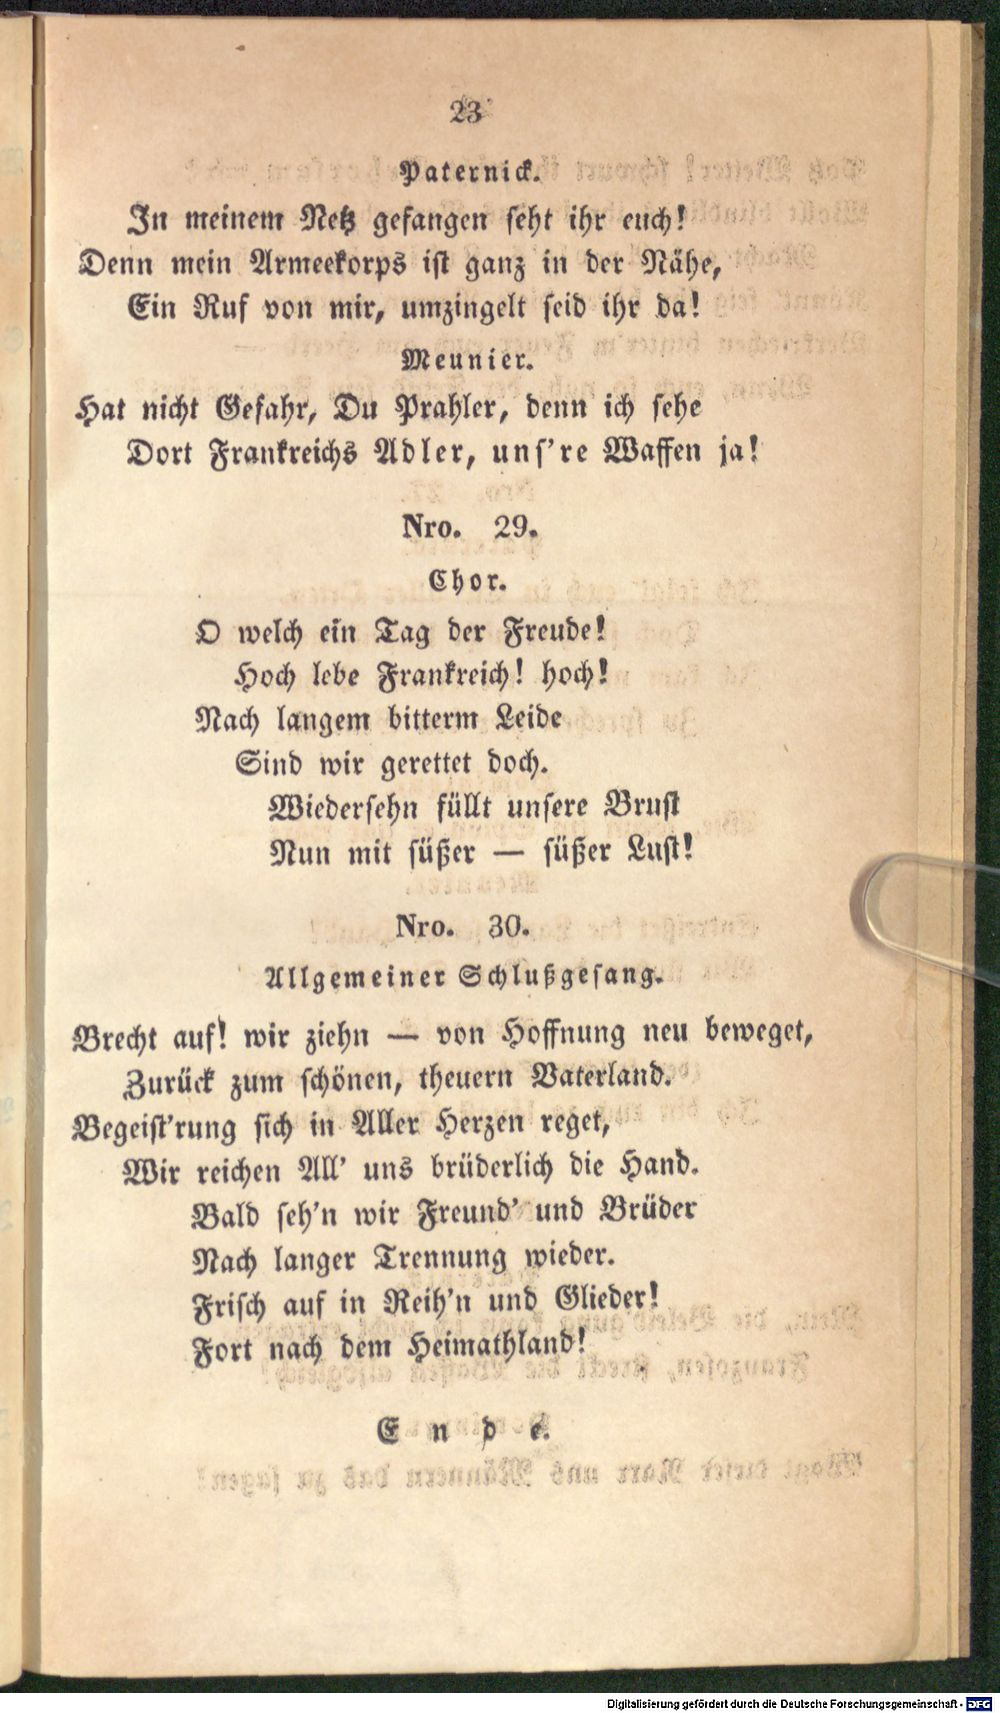 23
Paternick.
In meinem Netz gefangen seht ihr euch!
Denn mein Armeekorps ist ganz in der Nähe,
Ein Ruf von mir, umzingelt seid ihr da!
Meunier.
Hat nicht Gefahr, Du Prahler, denn ich sehe
Dort Frankreichs Adler, uns're Waffen ja!
Nro. 29.
Chor.
O welch ein Tag der Freude!
Hoch lebe Frankreich! hoch!
Nach langem bitterm Leide
Sind wir gerettet doch.
Wiedersehn füllt unsere Brust
Nun mit süßer — süßer Lust!
Nro. 30.
Allgemeiner Schlußgesang.
Brecht auf! wir ziehn — von Hoffnung neu beweget,
Zurück zum schönen, theuern Vaterland.
Begeist'rung sich in Aller Herzen reget,
Wir reichen All' uns brüderlich die Hand.
Bald seh'n wir Freund' und Brüder
Nach langer Trennung wieder.
Frisch auf in Reih'n und Glieder!
Fort nach dem Heimathland!
Ende.
Digitalisierung gefördert durch die Deutsche Forschungsgemeinschaft - DFG